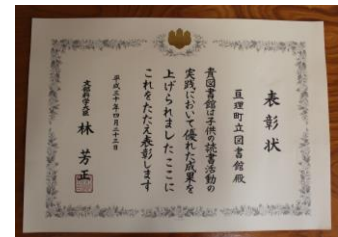 表彰状
亘理町立図書館殿
貴図書館は子供の読書活動の
実践において優れた成果を
上げられましたここに
これをたたえ表彰します
平成三十年四月二十三日
文部科学大臣 林 芳正